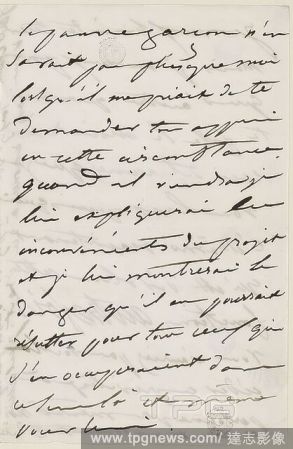 le pauvre garçon n'en
savait pas plus que moi
lorsqu'il me priait de te
demander ton appui
en cette circonstance
quand il viendra je
lui expliquerai les
inconvénients du projet
et je lui montrerai le
danger qu'il en pourrait
résulter pour tous ceux qui
s'en occuperaient dans
et même
pour lui.
TPG
www.tpgnews.com / 達志影像